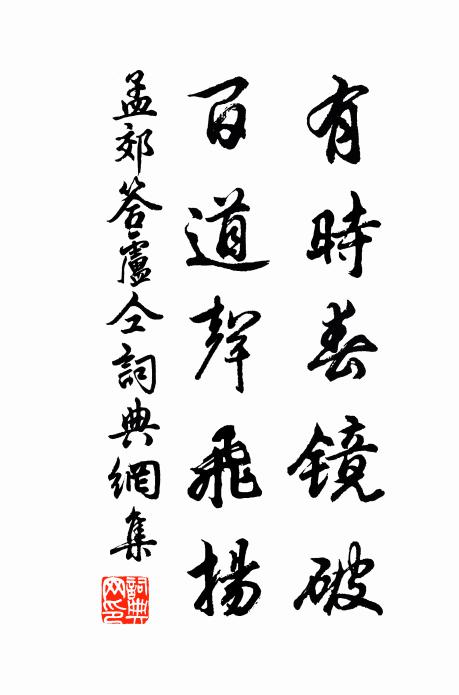 有時春鏡破
百道聲飛揚
孟郊答盧仝詞典網集
詞典网印